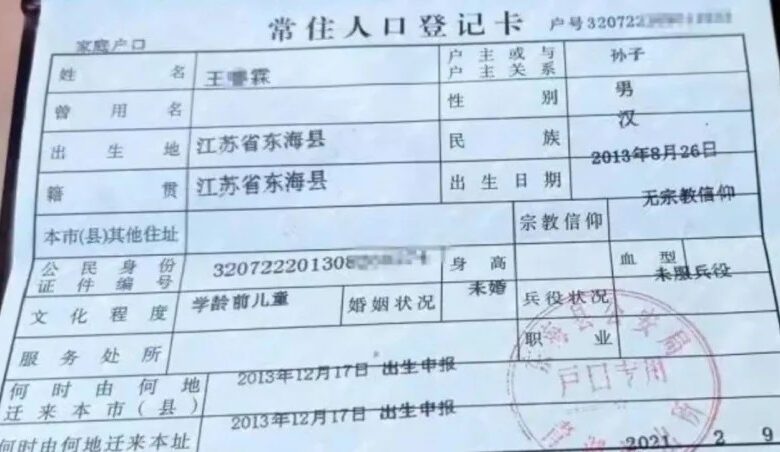 常住人口登记卡
户号320722
家庭户口
姓名 王 霖 户主或与户主关系 孙子
曾用名 性别 男
出生地 江苏省东海县 民族 汉
籍贯 江苏省东海县 出生日期 2013年8月26日
本市(县)其他住址 宗教信仰 无宗教信仰
公民身份证件编号 32072220130 身高 血型
文化程度 学龄前儿童 婚姻状况 未婚 兵役状况 未服兵役
服务处所 职业
何时由何地迁来本市(县) 2013年12月17日 出生申报
何时由何地迁来本址 2013年12月17日 出生申报
县公安局
户口专用
2021 2 9